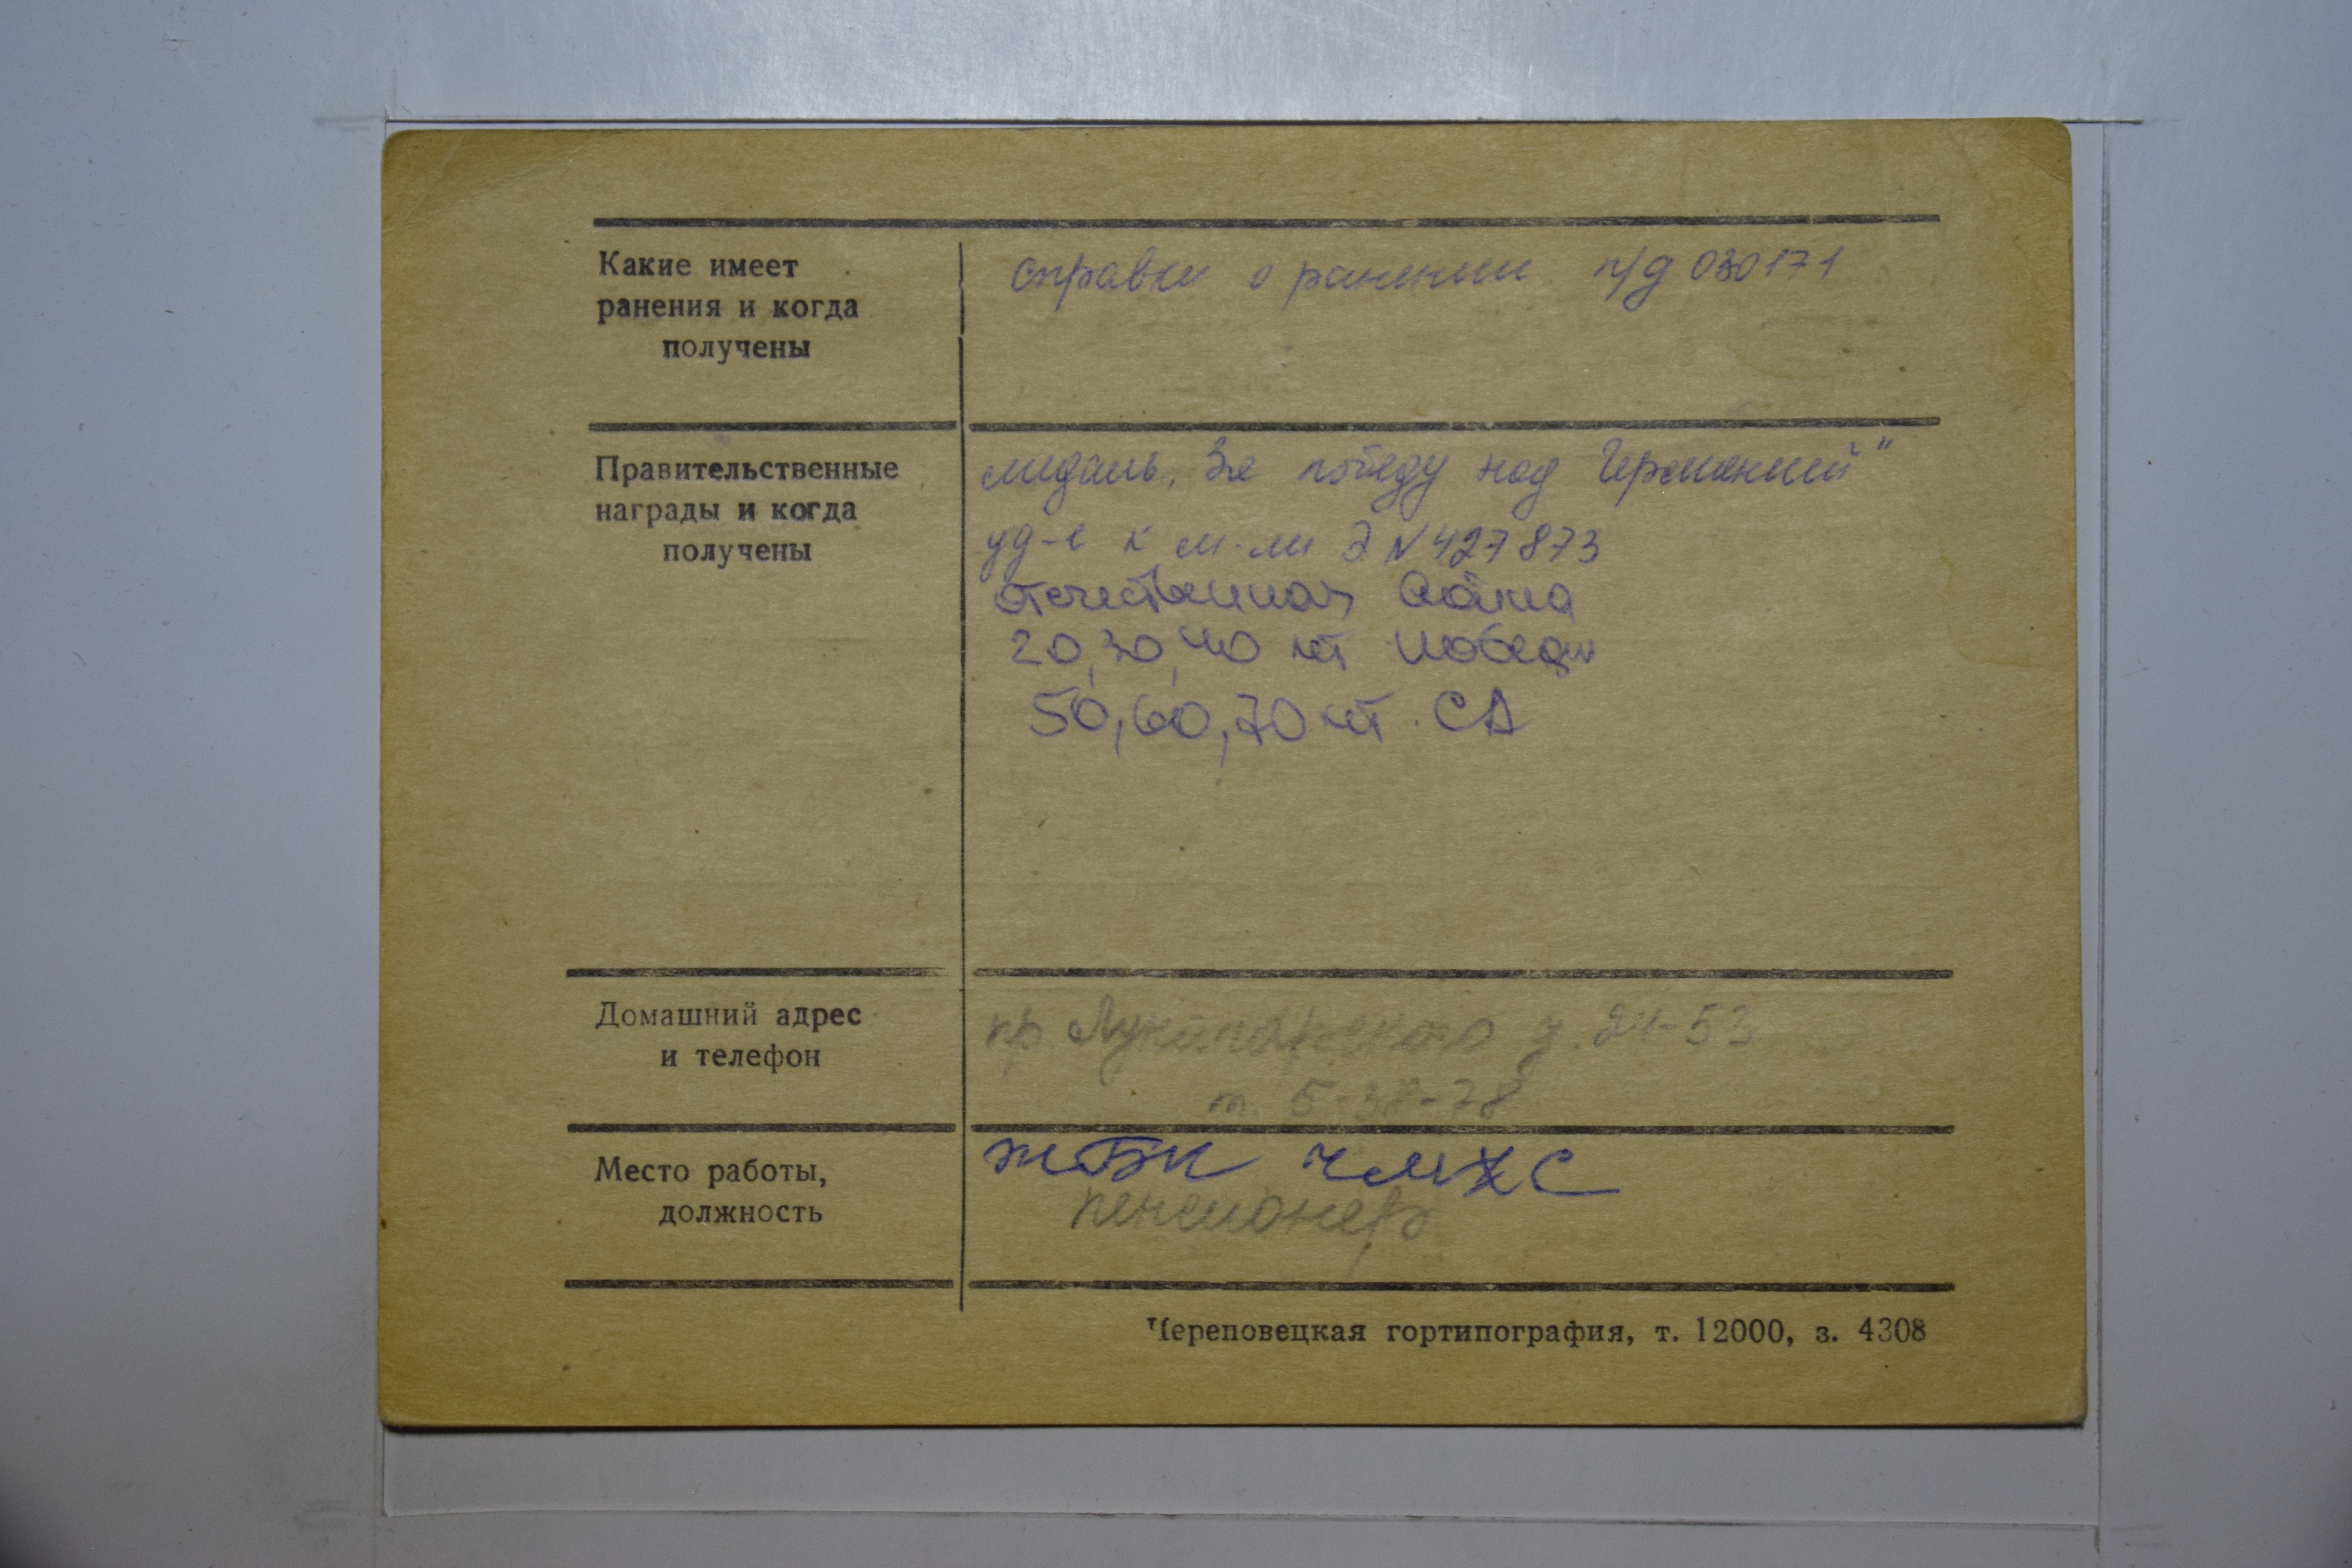 Какие имеет
ранения и когда
получены
справки о ранении п/д 030171
Правительственные
награды и когда
получены
медаль „За победу над Германией"
уд-е к м-ли Э N 427873
отечественная война
20, 30, 40 лет Победы
50, 60, 70 лет СА
Домашний адрес
и телефон
пр Луначарского д. 24-53
т. 5-38-78
Место работы,
должность
ЖБК ЧМХС
пенсионер
Череповецкая гортипография, т. 12000, з. 4308